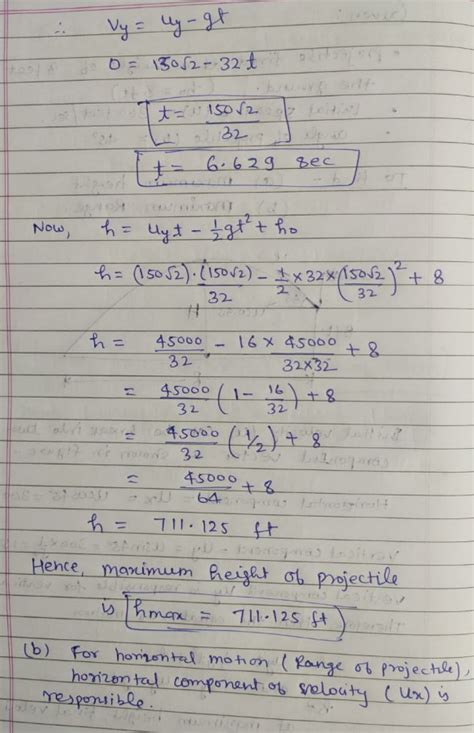 ∴ Vy = uy - gt
0 = 150√2 - 32t
t = 150√2/32
t = 6.629 sec
Now, h = uyt - 1/2 gt² + ho
h = (150√2)·(150√2)/32 - 1/2 × 32 × (150√2/32)² + 8
h = 45000/32 - 16 × 45000/32×32 + 8
= 45000/32 (1 - 16/32) + 8
= 45000/32 (1/2) + 8
= 45000/64 + 8
h = 711.125 ft
Hence, maximum height of projectile
is hmax = 711.125 ft
(b) For horizontal motion (Range of projectile),
horizontal component of velocity (Ux) is
responsible.